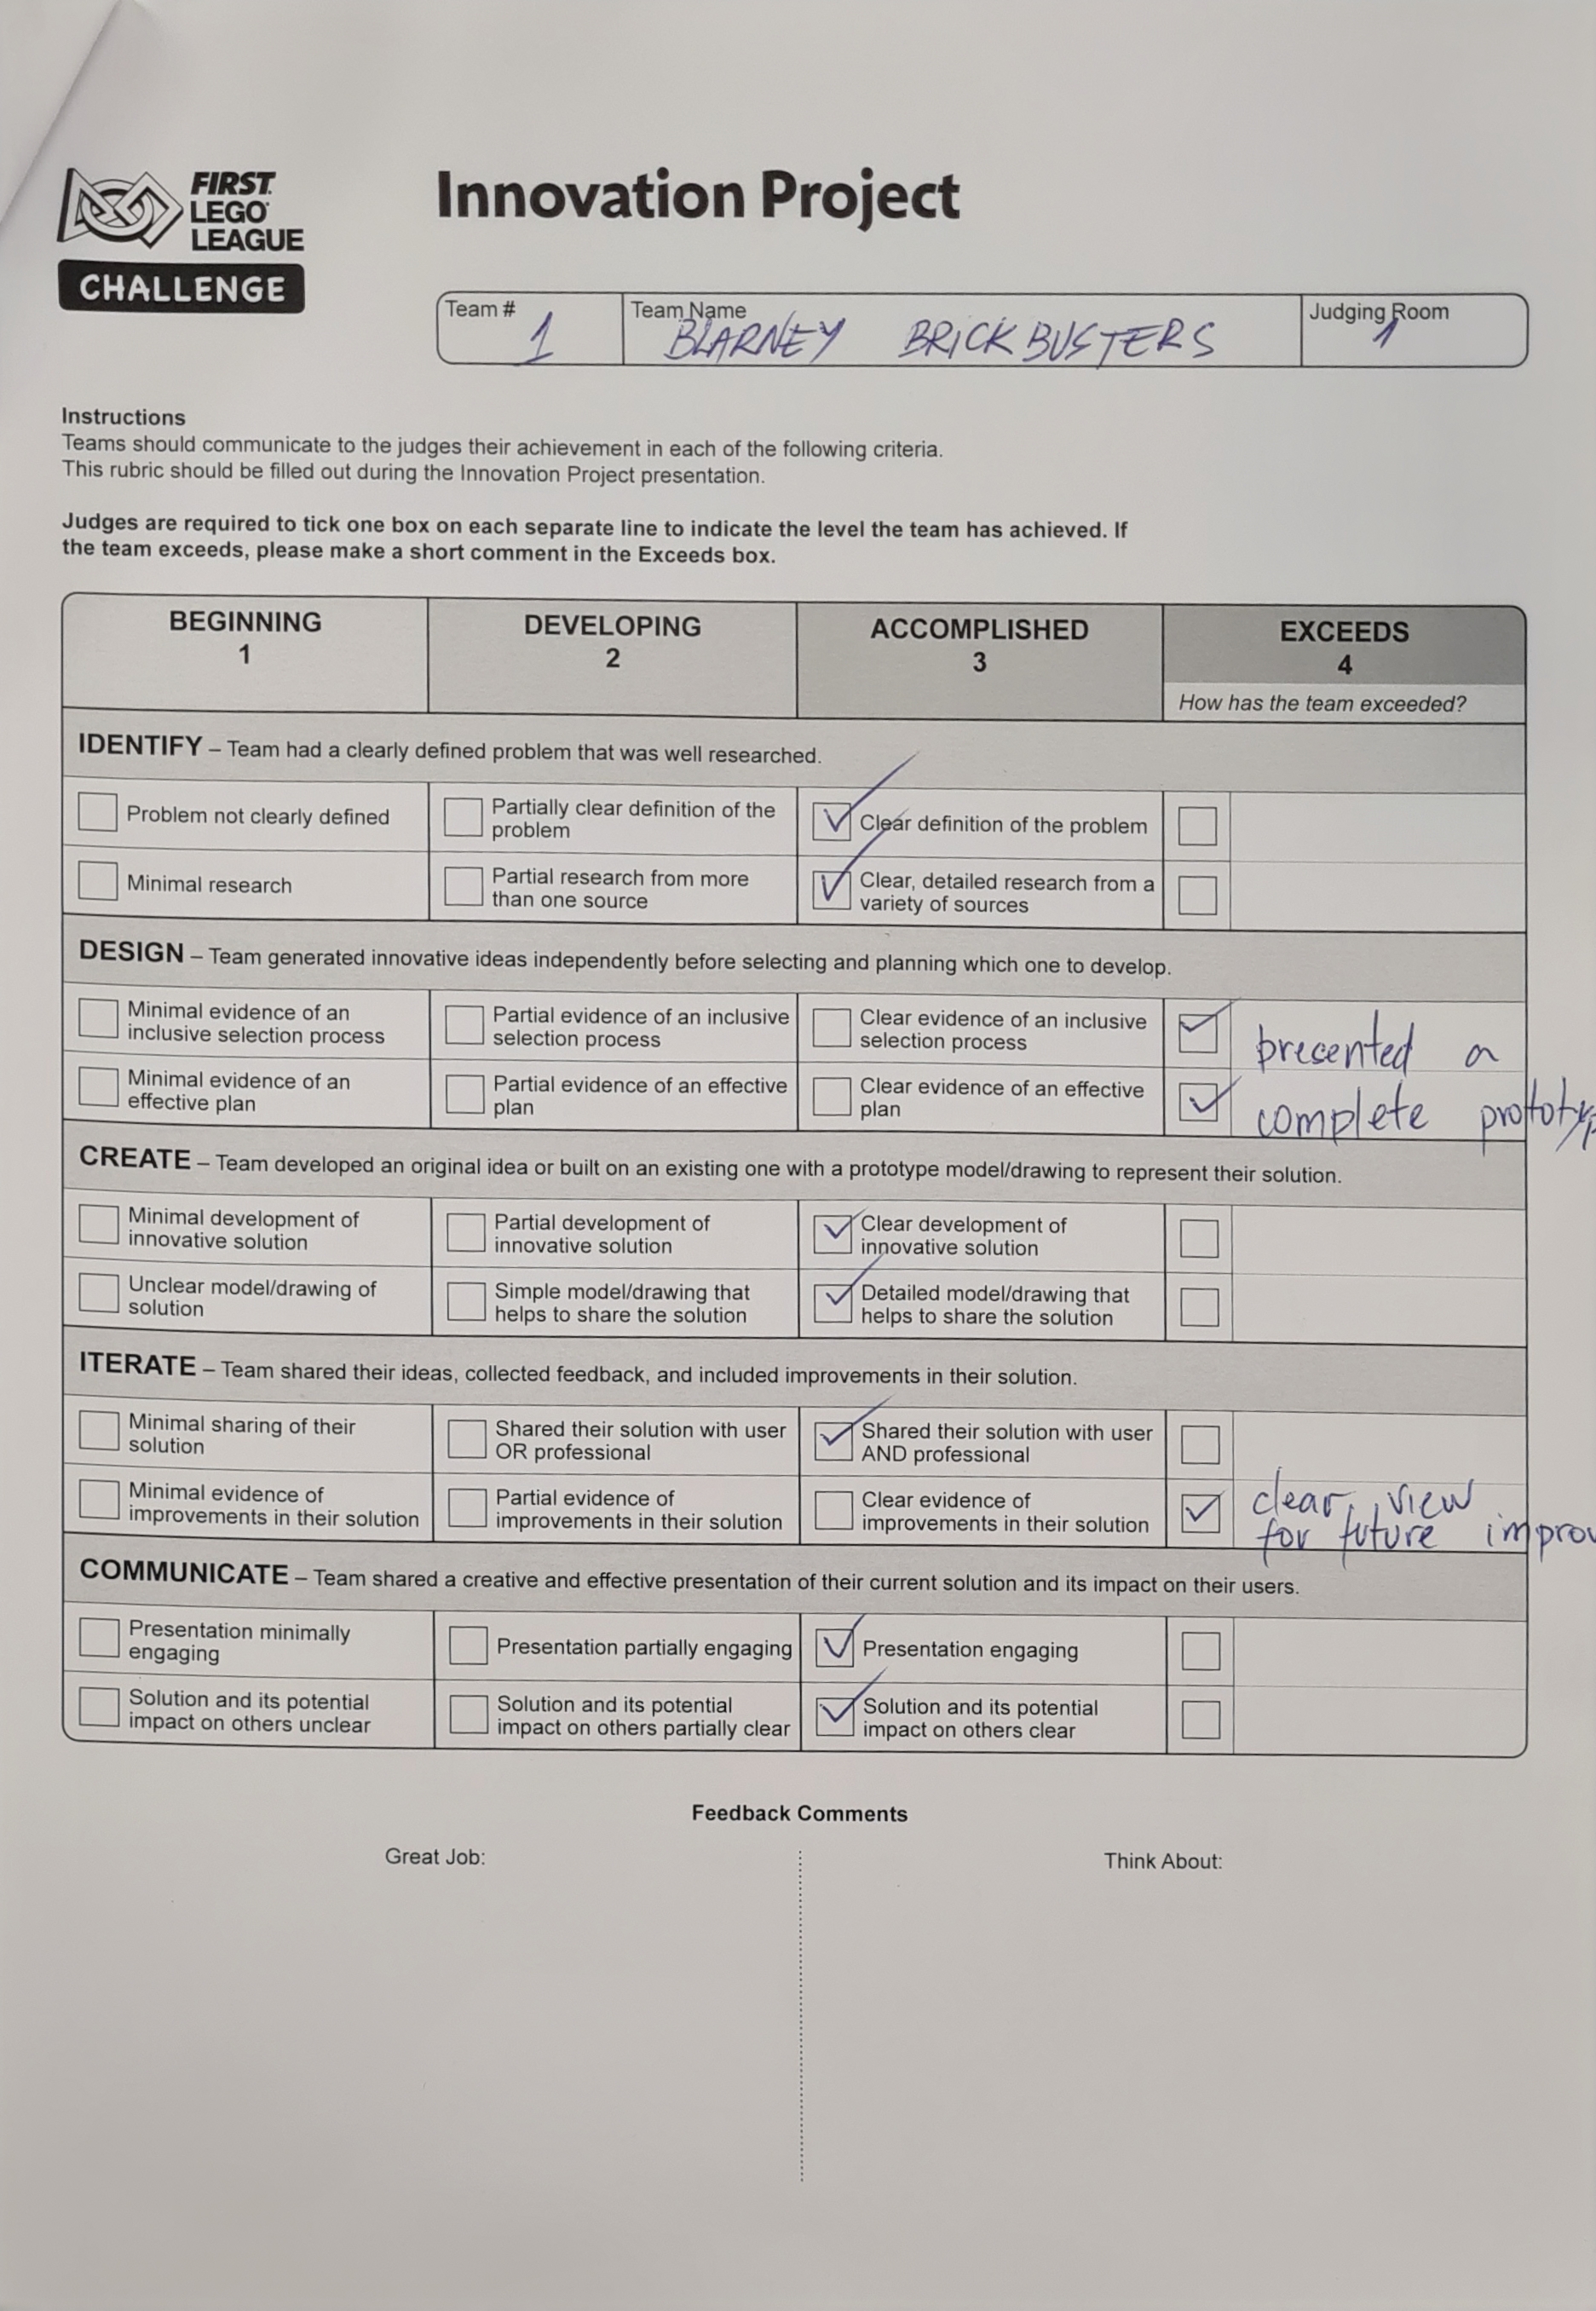 FIRST
LEGO
LEAGUE
CHALLENGE
Innovation Project
Team #
1
Team Name
BLARNEY BRICKBUSTERS
Judging Room
1
Instructions
Teams should communicate to the judges their achievement in each of the following criteria.
This rubric should be filled out during the Innovation Project presentation.
Judges are required to tick one box on each separate line to indicate the level the team has achieved. If
the team exceeds, please make a short comment in the Exceeds box.
BEGINNING
1
DEVELOPING
2
ACCOMPLISHED
3
EXCEEDS
4
How has the team exceeded?
IDENTIFY – Team had a clearly defined problem that was well researched.
Problem not clearly defined
Partially clear definition of the
problem
Clear definition of the problem
Minimal research
Partial research from more
than one source
Clear, detailed research from a
variety of sources
DESIGN – Team generated innovative ideas independently before selecting and planning which one to develop.
Minimal evidence of an
inclusive selection process
Partial evidence of an inclusive
selection process
Clear evidence of an inclusive
selection process
presented a
Minimal evidence of an
effective plan
Partial evidence of an effective
plan
Clear evidence of an effective
plan
complete
CREATE – Team developed an original idea or built on an existing one with a prototype model/drawing to represent their solution.
Minimal development of
innovative solution
Partial development of
innovative solution
Clear development of
innovative solution
Unclear model/drawing of
solution
Simple model/drawing that
helps to share the solution
Detailed model/drawing that
helps to share the solution
ITERATE – Team shared their ideas, collected feedback, and included improvements in their solution.
Minimal sharing of their
solution
Shared their solution with user
OR professional
Shared their solution with user
AND professional
Minimal evidence of
improvements in their solution
Partial evidence of
improvements in their solution
Clear evidence of
improvements in their solution
clear view
for future
COMMUNICATE – Team shared a creative and effective presentation of their current solution and its impact on their users.
Presentation minimally
engaging
Presentation partially engaging
Presentation engaging
Solution and its potential
impact on others unclear
Solution and its potential
impact on others partially clear
Solution and its potential
impact on others clear
Feedback Comments
Great Job:
Think About: